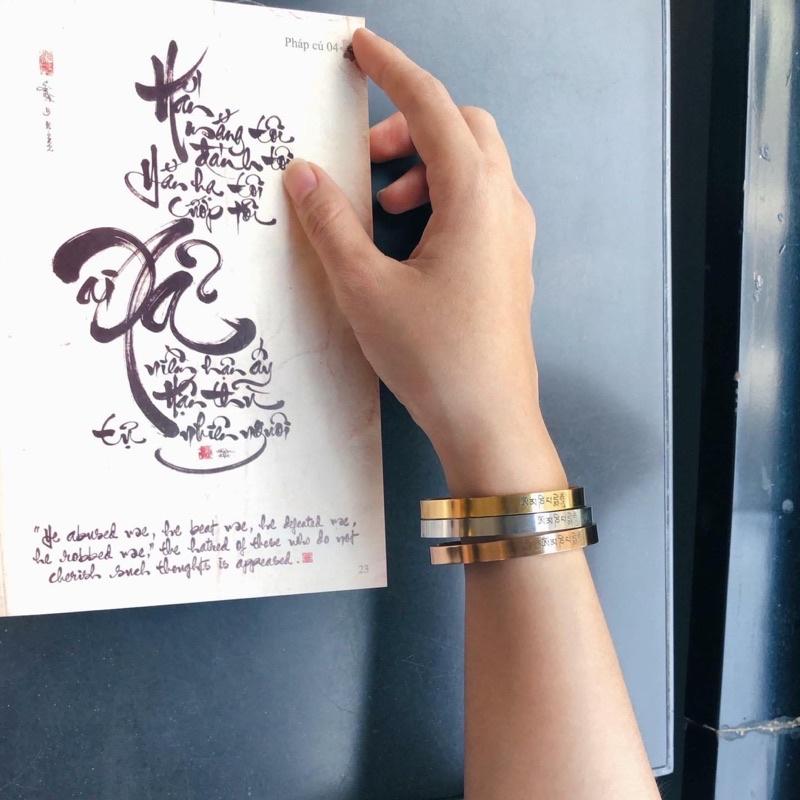 Pháp cú 04
Hắn
mắng tôi
đánh tôi
Hắn hạ tôi
cướp tôi
ai Xả
niềm hận ấy
Hận thù
tự nhiên nguôi
"He abused me, he beat me, he defeated me,
he robbed me," the hatred of those who do not
cherish such thoughts is appeased.
23